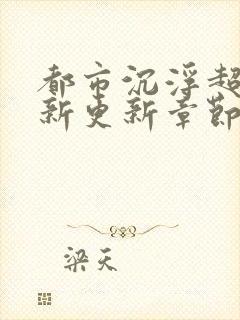 都市沉浮超
新更新章节
梁天